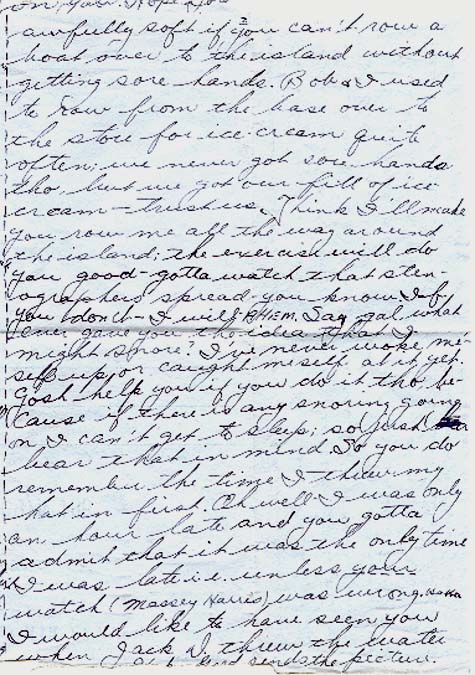 on your. Hope you
awfully soft if you can't row a
boat over to the island without
getting sore hands. Bob & I used
to row from the base over to
the store for ice cream quite
often; we never got sore hands
tho, but we got our fill of ice
cream - trust us. Think I'll make
you row me all the way around
the island; the exercise will do
you good - gotta watch that sten-
ographers spread - you know. If
you don't - I will - AHEM. Say gal what
ever gave you the idea that I
might snore? I've never woke me-
self up or caught meself at it yet.
Gosh help you if you do it tho be-
cause if there is any snoring going
on I can't get to sleep; so just
bear that in mind. So you do
remember the time I threw my
hat in first. Oh well I was only
an hour late and you gotta
admit that it was the only time
I was late i.e. unless your
watch (Massey Harris) was wrong. Ha Ha
I would like to have seen you
when Jack W. threw the water
send the picture.